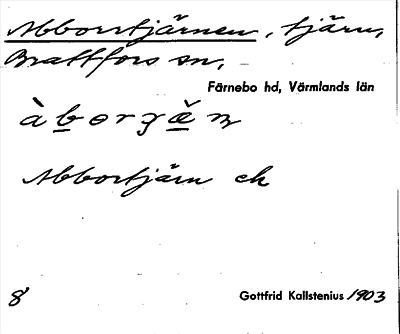 Abborrtjärnen, tjärn,
Brattfors sn,
Färnebo hd, Värmlands län
Abbortjärn ek
8
Gottfrid Kallstenius 1903